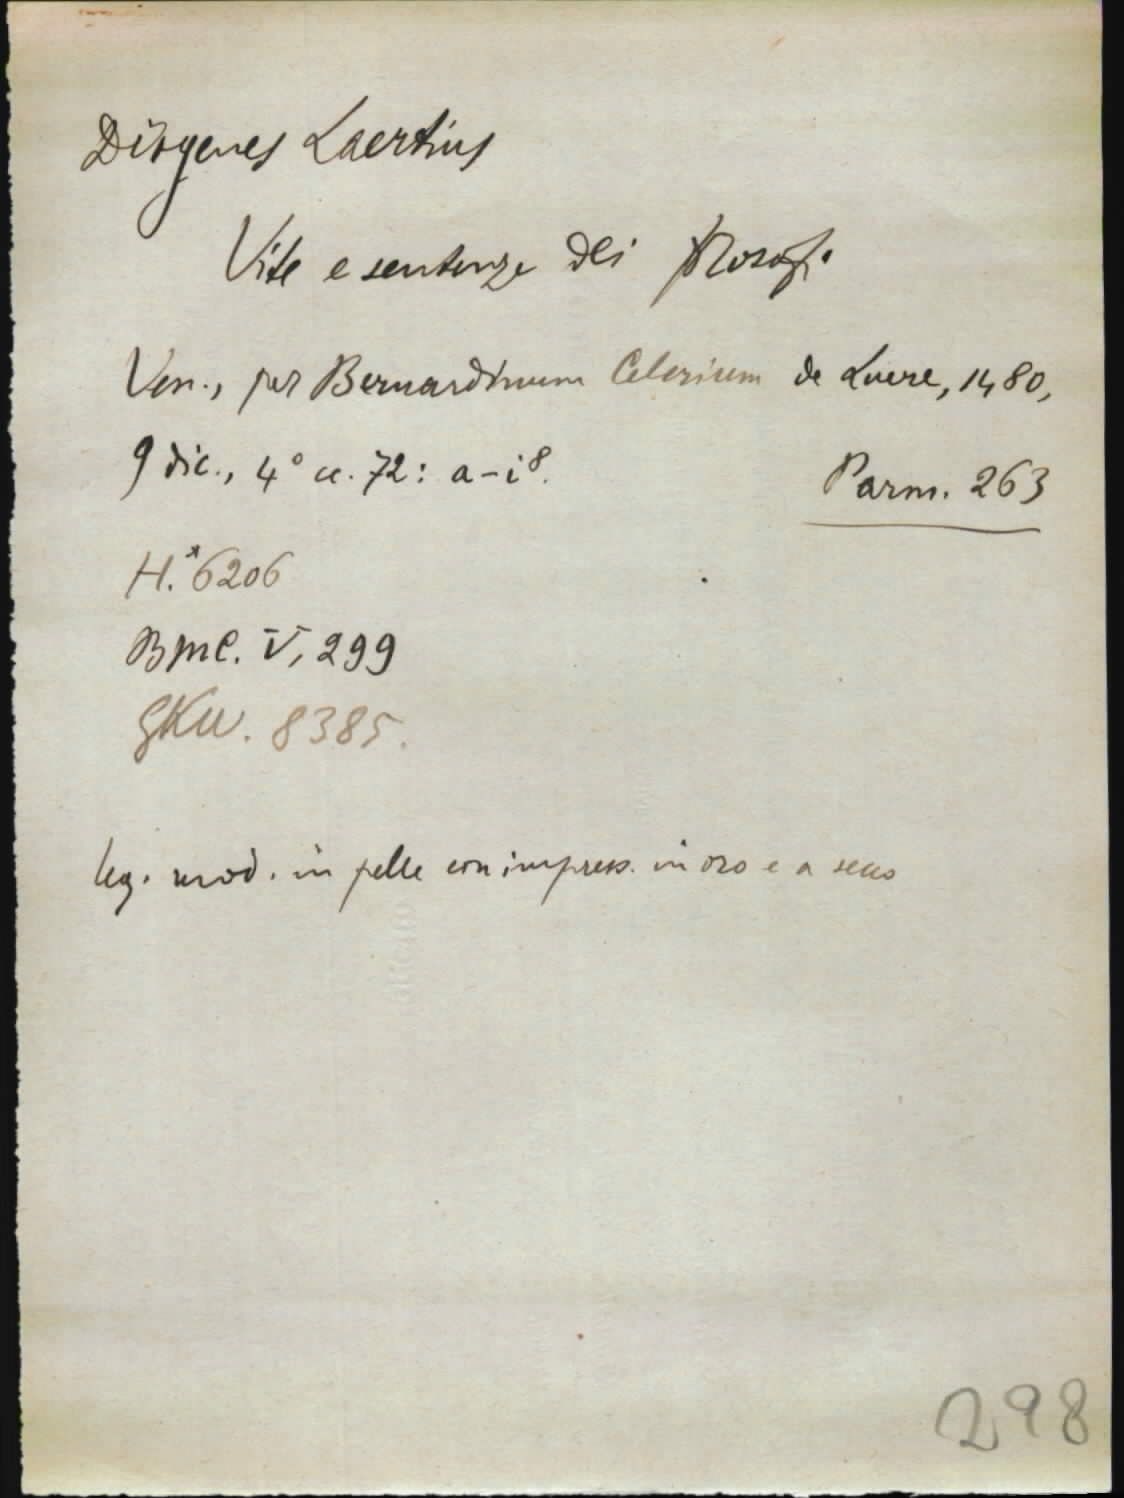 Diogenes Laertius
Vite e sentenze dei filosofi.
Ven., per Bernardinum Celerium de Luere, 1480,
9 dic., 4° cc. 72: a-i⁸.
Parm. 263
H.*6206
BMC. V, 299
GKW. 8385.
leg. mod. in pelle con impress. in oro e a secco
298